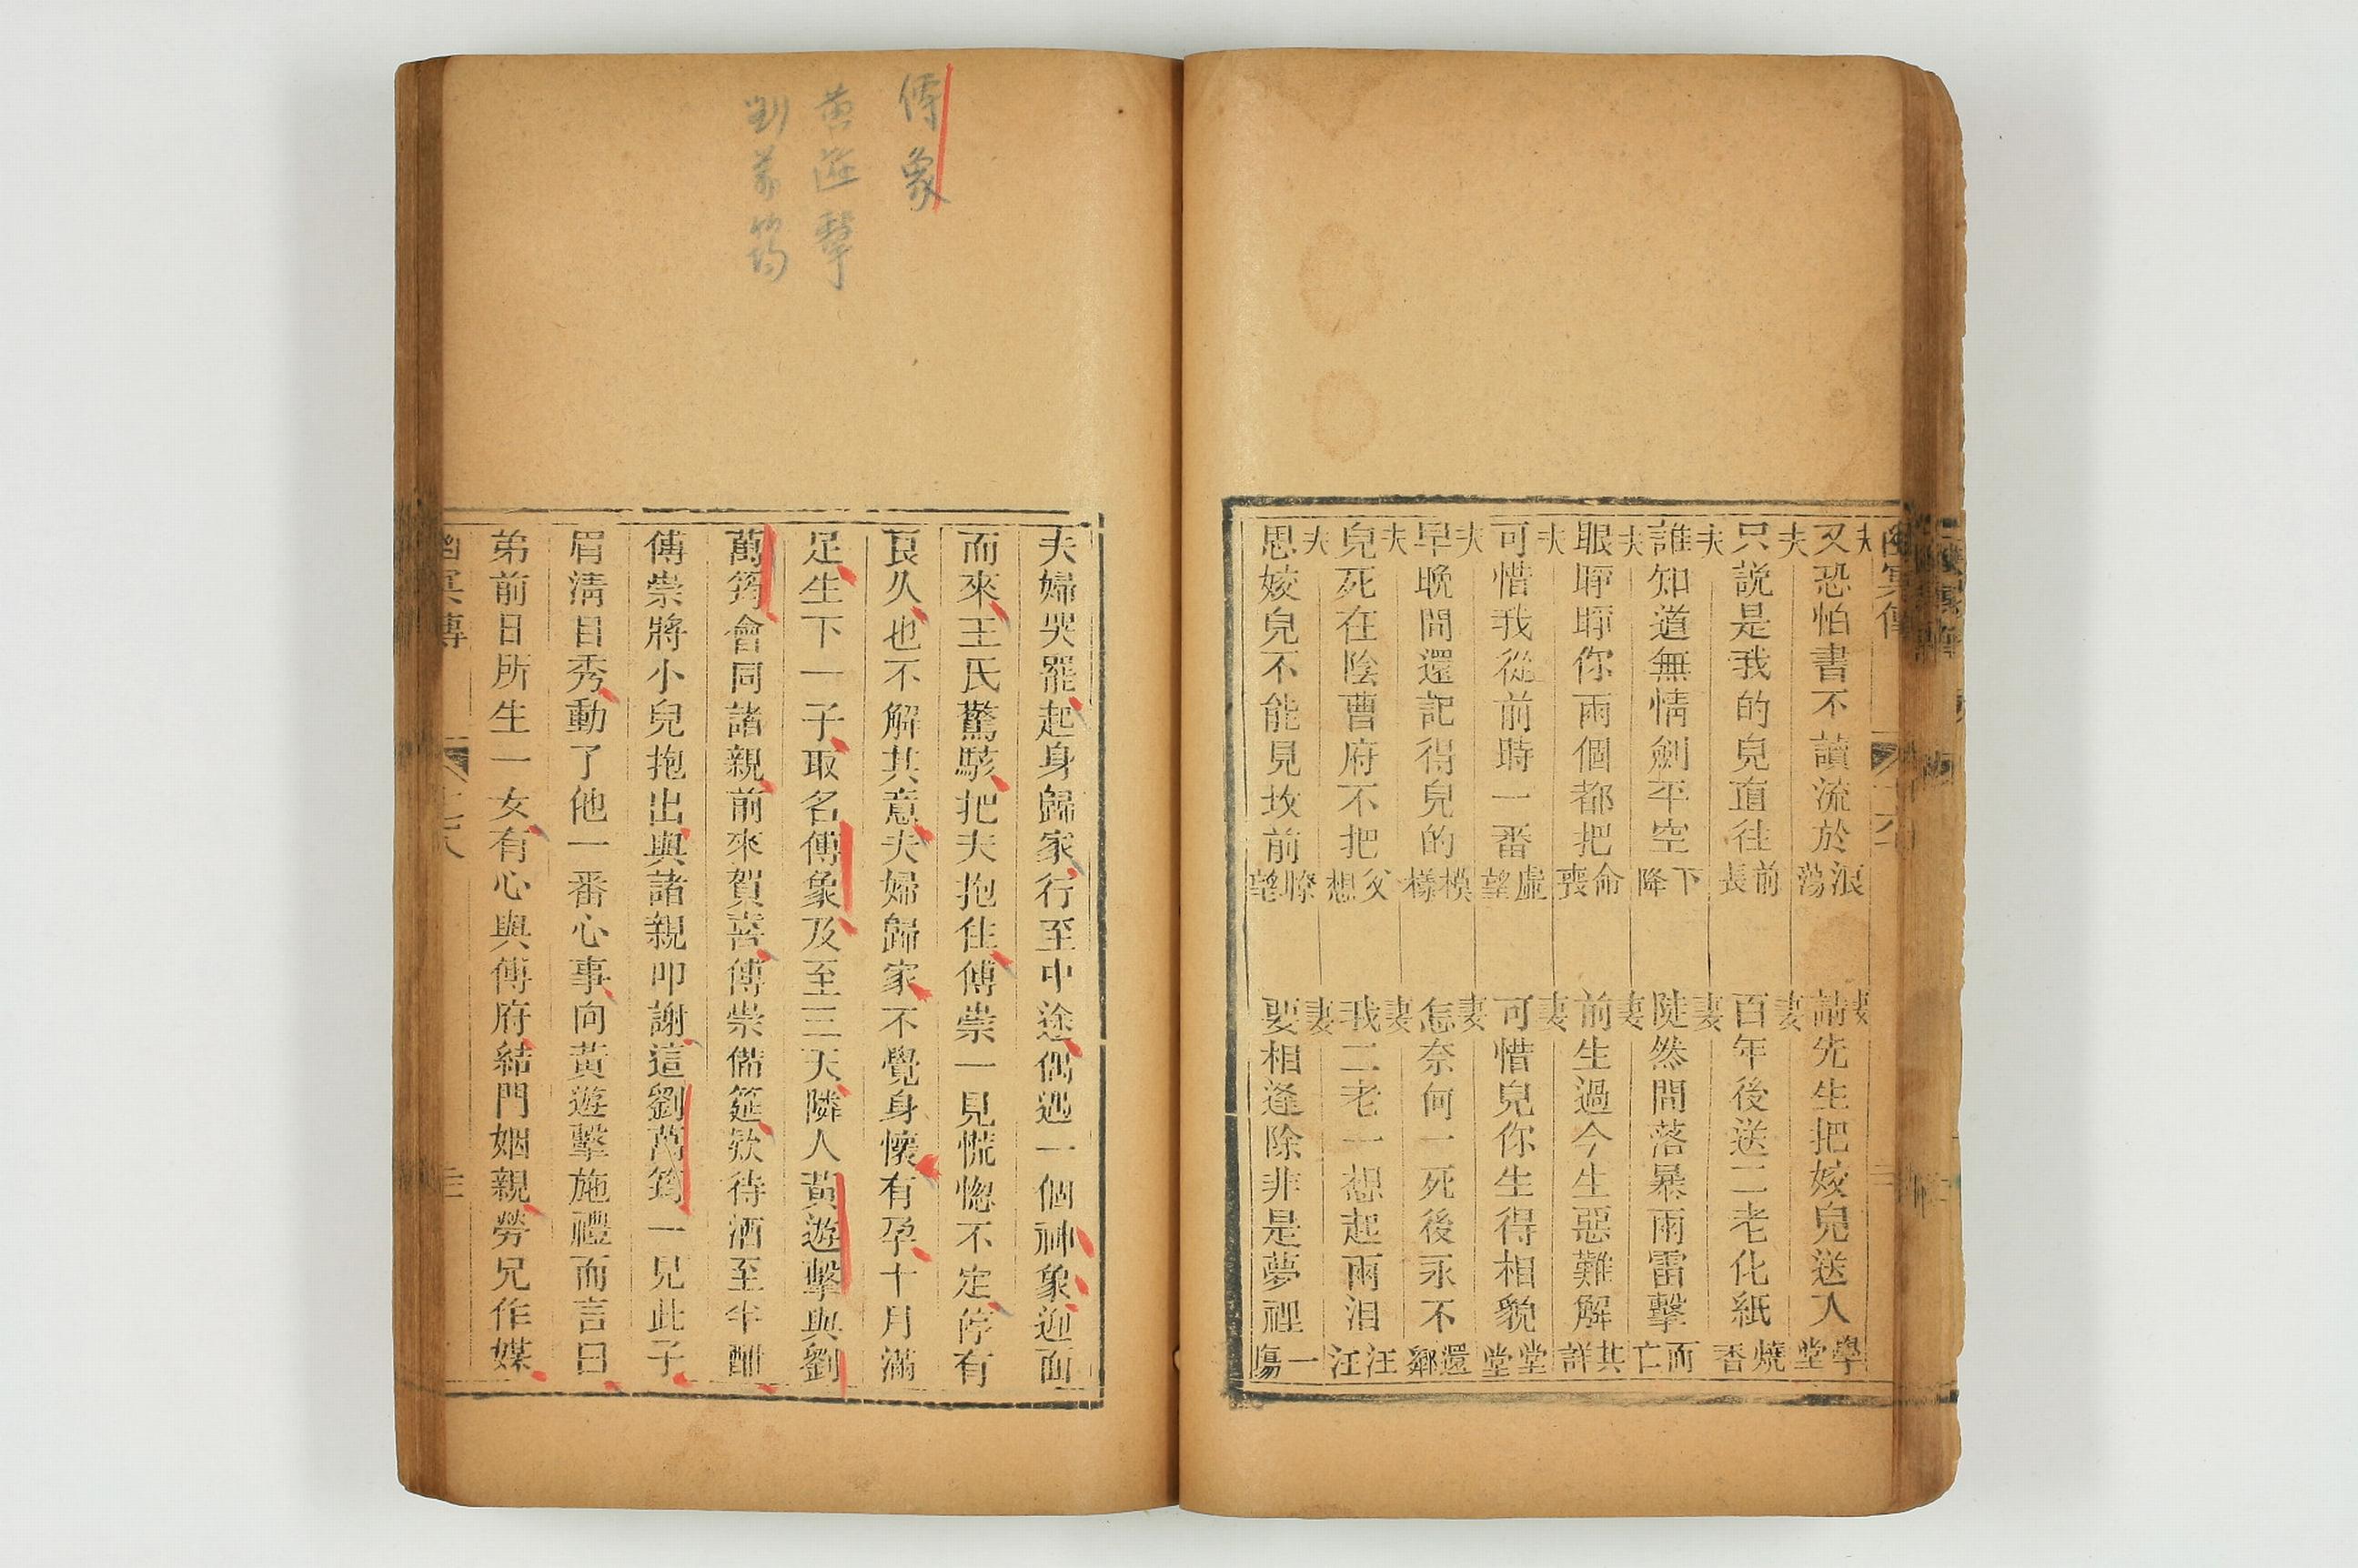 夫又恐怕書不讀流於浪蕩 妻請先生把姣兒送入學堂
夫只説是我的兒直往前長 妻百年後送二老化紙燒香
夫誰知道無情劍平空下降 妻陡然間落暴雨雷擊而亡
夫眼睜睜你兩個都把命喪 妻前生過今生惡難解其詳
夫可惜我從前時一番虛望 妻可惜兒你生得相貌堂堂
夫早晚間還記得兒的模樣 妻怎奈何一死後永不還鄉
夫兒死在陰曹府不把父想 妻我二老一想起兩淚汪汪
夫思姣兒不能見坟前瞭望 妻要相逢除非是夢裡一場
傅象
黃遊擊
劉萬筠
夫婦哭罷起身歸家行至中途偶遇一個神象迎面
而來王氏驚駭把夫抱住傅崇一見慌惚不定停有
良久也不解其意夫婦歸家不覺身懷有孕十月滿
足生下一子取名傅象及至三天隣人黃遊擊與劉
萬筠會同諸親前來賀喜傅崇備筵欵待酒至半酣
傅崇將小兒抱出與諸親叩謝這劉萬筠一見此子
眉清目秀動了他一番心事向黃遊擊施禮而言曰
弟前日所生一女有心與傅府結門姻親勞兄作媒
幽冥傳